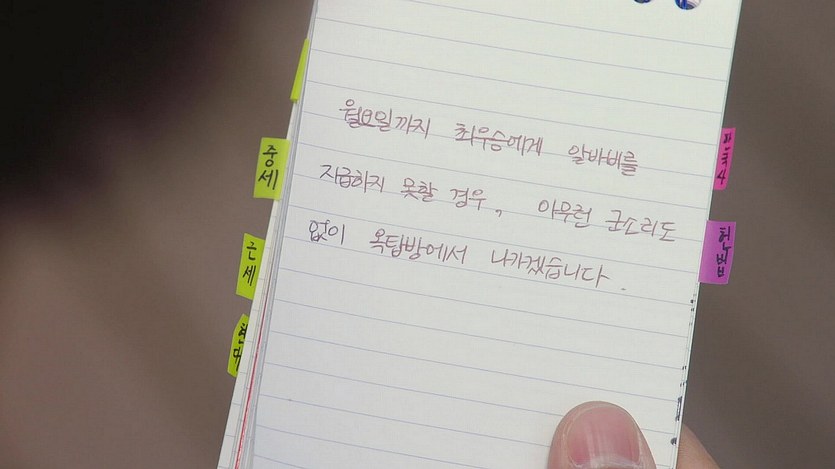 월요일까지 최우승에게 알바비를
지급하지 못할 경우, 아무런 군소리도
없이 옥탑방에서 나가겠습니다.
중세
근세
헌법